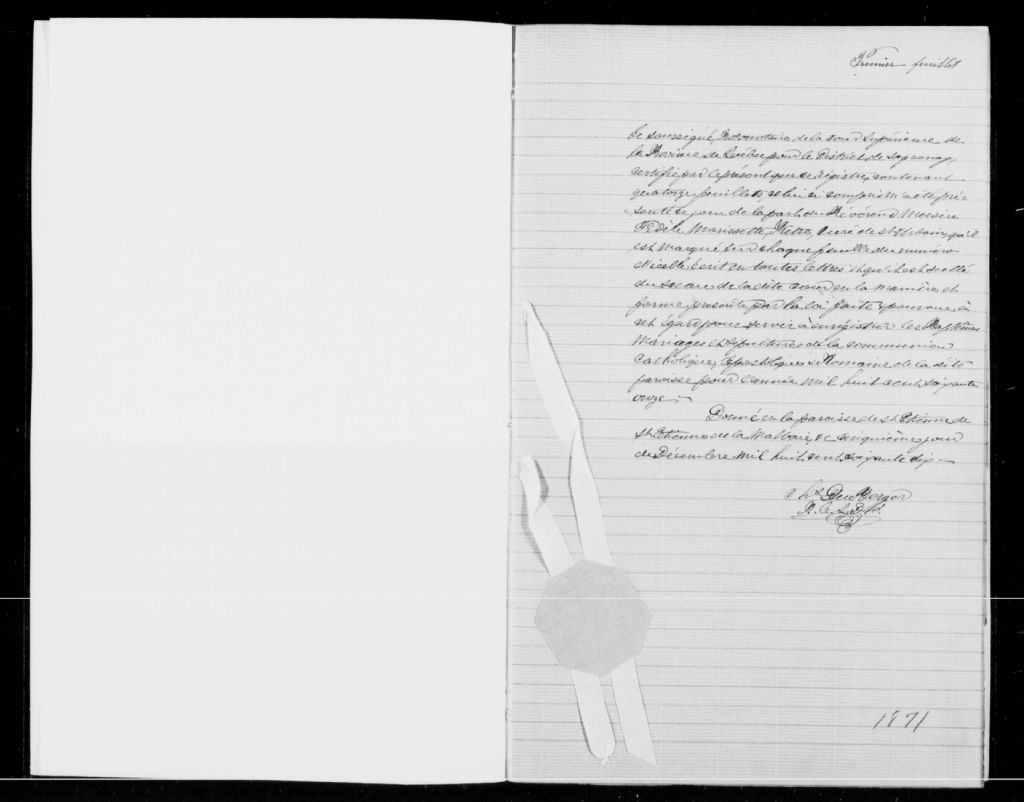 Premier feuillet
Le soussigné, Protonotaire de la cour Supérieure de
la Province de Québec pour le District de Saguenay,
certifie par le présent que ce régistre, contenant
quatorze feuillets, celui ci compris m'a été pré-
senté ce jour de la part du Révérend Messire
Fidèle Morissette, Prêtre, Curé de St Urbain, qu'il
est marqué sur chaque feuille du numéro
d'icelle écrit en toutes lettres et qu'il est scellé
du sceau de la dite cour en la manière et
forme prescrite par la loi faite et pourvue à
cet égard pour servir à enrégistrer les Baptêmes
Mariages et Sépultures de la communion
Catholique, Apostolique et Romaine de la dite
paroisse pour l'année mil huit cent soixante
onze.
Donné en la paroisse de St Etienne de
St Etienne de la Malbaie, ce cinquième jour
de Décembre mil huit cent soixante dix
Chs DuBerger
P. C. S. D. S.
1871